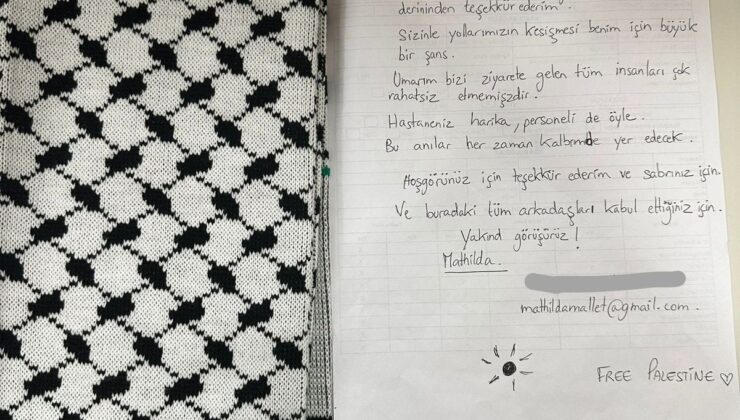 derininden teşekkür ederim.
Sizinle yollarımızın kesişmesi benim için büyük
bir şans.
Umarım bizi ziyarete gelen tüm insanları çok
rahatsız etmemişzdir.
Hastaneniz harika, personeli de öyle.
Bu anılar her zaman kalbimde yer edecek.
Hoşgörünüz için teşekkür ederim ve sabrınız için.
Ve buradaki tüm arkadaşları kabul ettiğiniz için.
Yakınd görüşürüz!
Mathilda.
mathildamallet@gmail.com.
FREE PALESTINE ♡